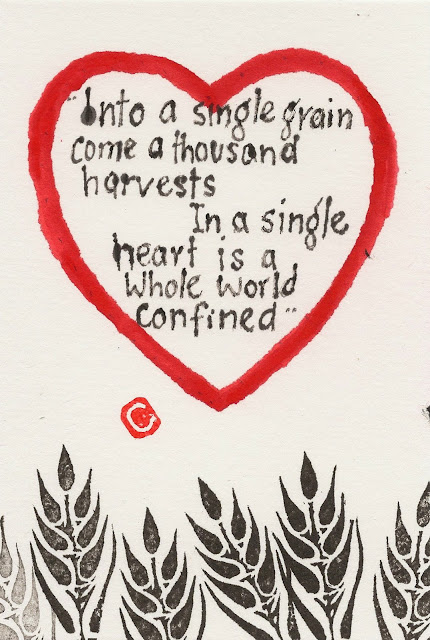 "Into a single grain
come a thousand
harvests
In a single
heart is a
whole world
confined"
C